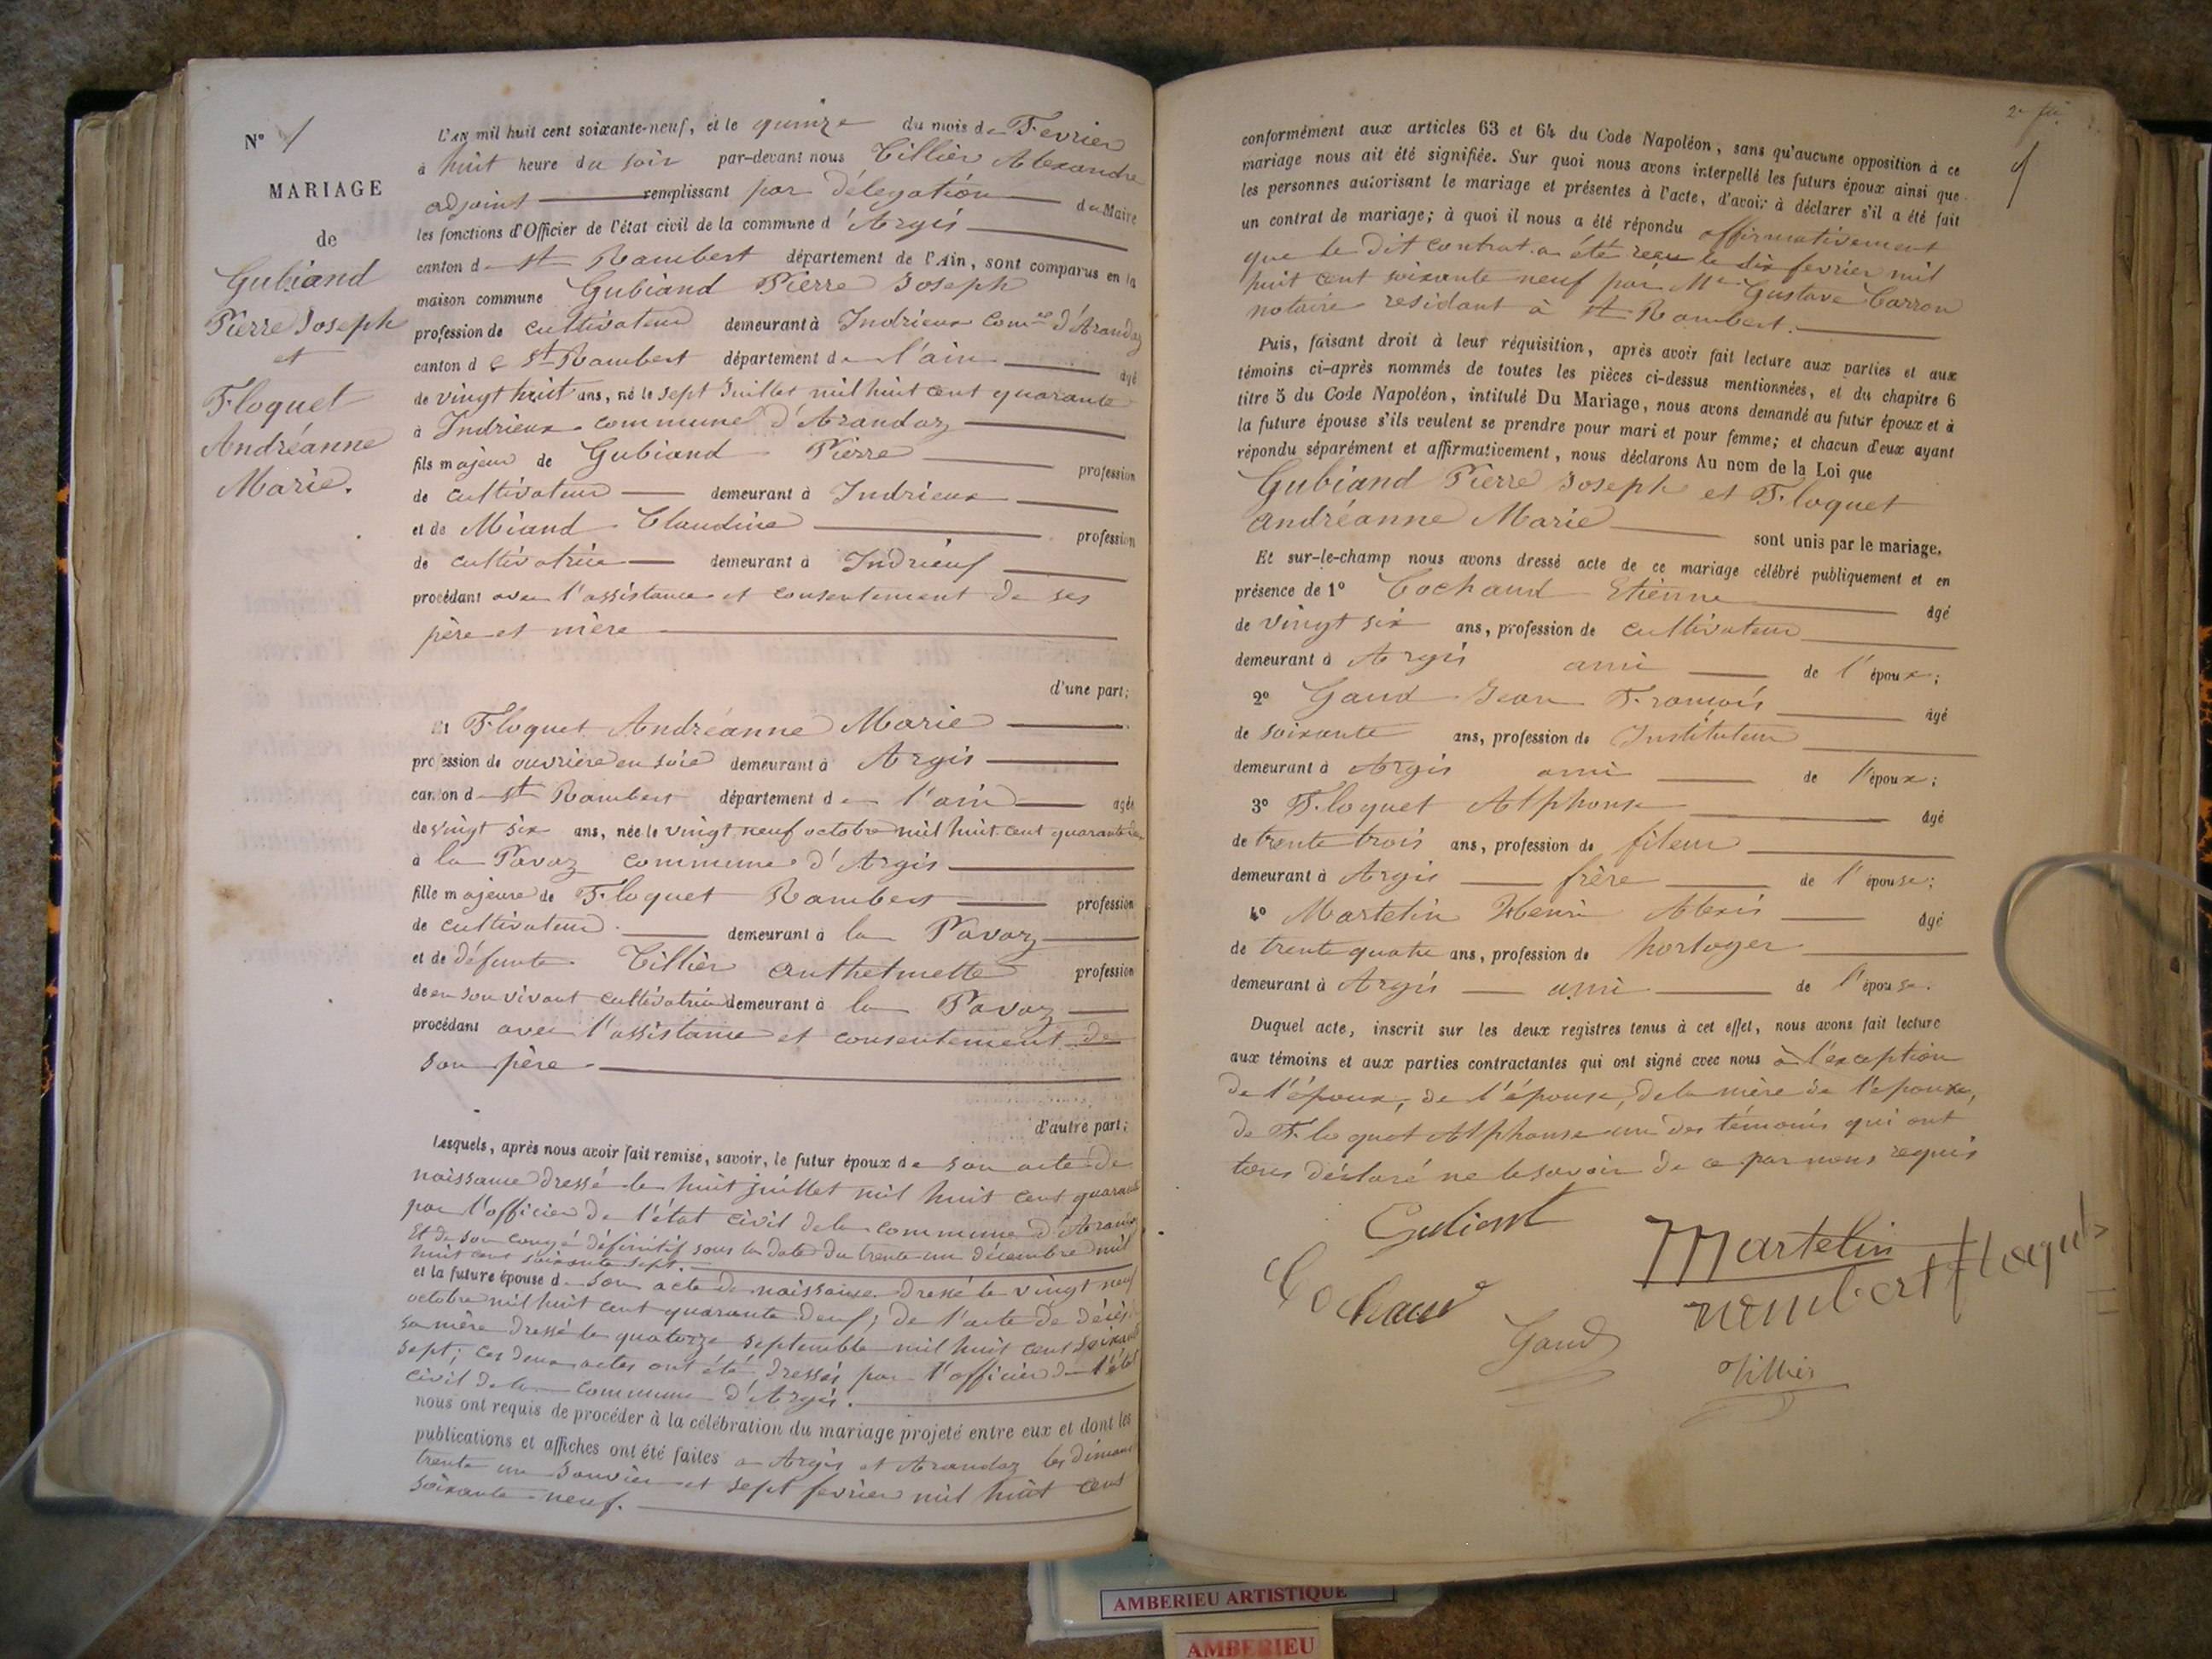 N° 1
MARIAGE
de
Gubiand
Pierre Joseph
et
Floquet
Andréanne
Marie.
L'an mil huit cent soixante-neuf, et le quinze du mois de Fevrier
à huit heure du soir par-devant nous Tillier Alexandre
adjoint remplissant par délegation du Maire
les fonctions d'Officier de l'état civil de la commune d'Argis
canton de St Rambert département de l'Ain, sont comparus en la
maison commune Gubiand Pierre Joseph
profession de cultivateur demeurant à Indrieux comne d'Arandaz
canton de St Rambert département de l'ain âgé
de vingt huit ans, né le sept Juillet mil huit cent quarante
à Indrieux commune d'Arandaz
fils majeur de Gubiand Pierre profession
de cultivateur demeurant à Indrieux
et de Miand Claudine profession
de cultivatrice demeurant à Indrieux
procédant avec l'assistance et consentement de ses
père et mère
d'une part;
et Floquet Andréanne Marie
profession de ouvrière en soie demeurant à Argis
canton de St Rambert département de l'ain agée
de vingt six ans, née le vingt neuf octobre mil huit cent quarante
à la Pavaz commune d'Argis
fille majeure de Floquet Rambert profession
de cultivateur demeurant à la Pavaz
et de défunte Tillier Anthelmette profession
de en son vivant cultivatrice demeurant à la Pavaz
procédant avec l'assistance et consentement de
son père
d'autre part;
Lesquels, après nous avoir fait remise, savoir, le futur époux de son acte de
naissance dressé le huit juillet mil huit cent quarante
par l'officier de l'état civil de la commune d'Arandaz
Et de son congé définitif sous la date du trente un décembre mil
huit cent soixante sept.
et la future épouse de son acte de naissance dressé le vingt neuf
octobre mil huit cent quarante deux; de l'acte de décès
sa mère dressé le quatorze septembre mil huit cent soixante
sept; ces deux actes ont été dressés par l'officier de l'état
civil de la commune d'Argis.
nous ont requis de procéder à la célébration du mariage projeté entre eux et dont les
publications et affiches ont été faites a Argis et Arandaz les dimanc
trente un Janvier et sept fevrier mil huit cent
soixante neuf.
conformément aux articles 63 et 64 du Code Napoléon, sans qu'aucune opposition à ce
mariage nous ait été signifiée. Sur quoi nous avons interpellé les futurs époux ainsi que
les personnes autorisant le mariage et présentes à l'acte, d'avoir à déclarer s'il a été fait
un contrat de mariage; à quoi il nous a été répondu affirmativement
que le dit contrat a été reçu le dix fevrier mil
huit cent soixante neuf par Me Gustave Carron
notaire residant à St Rambert.
Puis, faisant droit à leur réquisition, après avoir fait lecture aux parties et aux
témoins ci-après nommés de toutes les pièces ci-dessus mentionnées, et du chapitre 6
titre 5 du Code Napoléon, intitulé Du Mariage, nous avons demandé au futur époux et à
la future épouse s'ils veulent se prendre pour mari et pour femme; et chacun d'eux ayant
répondu séparément et affirmativement, nous déclarons Au nom de la Loi que
Gubiand Pierre Joseph et Floquet
Andréanne Marie sont unis par le mariage.
Et sur-le-champ nous avons dressé acte de ce mariage célébré publiquement et en
présence de 1° Cochaud Etienne âgé
de vingt six ans, profession de cultivateur
demeurant à Argis ami de l'époux;
2° Gaud Jean François âgé
de soixante ans, profession de Instituteur
demeurant à Argis ami de l'époux;
3° Floquet Alphonse âgé
de trente trois ans, profession de fileur
demeurant à Argis frère de l'épouse;
4° Martelin Henri Alexis âgé
de trente quatre ans, profession de horloger
demeurant à Argis ami de l'épouse.
Duquel acte, inscrit sur les deux registres tenus à cet effet, nous avons fait lecture
aux témoins et aux parties contractantes qui ont signé avec nous à l'exception
de l'époux, de l'épouse, de la mère de l'époux,
de Floquet Alphonse un des témoins qui ont
tous déclaré ne le savoir de ce par nous requis
Gubiand
Martelin
Cochaud
rembert floquet
Gaud
Tillier
AMBERIEU ARTISTIQUE
AMBERIEU